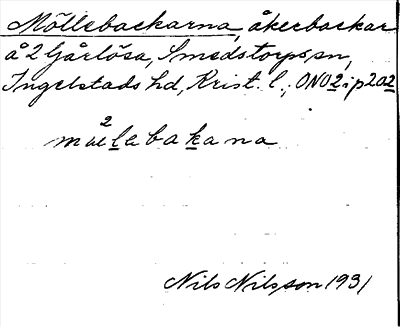 Möllebackarna, åkerbackar
å 2 Gårlösa, Smedstorps sn,
Ingelstads hd, Krist. l.; ONO 2 i p 202
2
mœlebakana
Nils Nilsson 1931